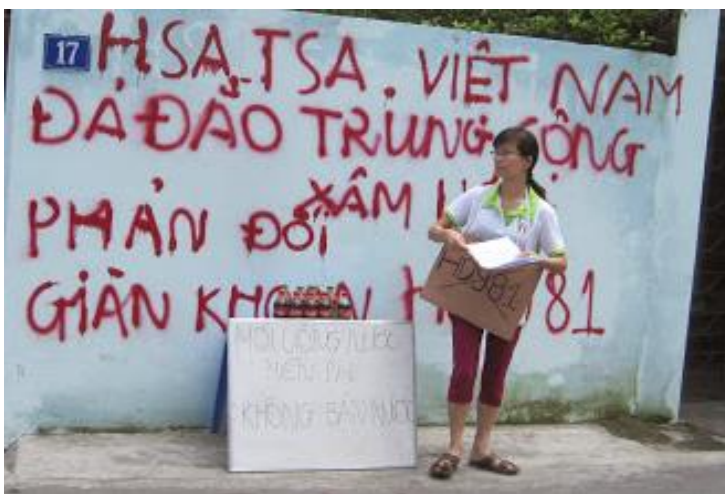 17
HSA.TSA. VIỆT NAM
ĐẢ ĐẢO TRUNG CỘNG
XÂM
PHẢN ĐỐI
GIÀN KHOAN 81
HD981
MỜI UỐNG NƯỚC
MIỄN PHÍ
KHÔNG BÁN NƯỚC